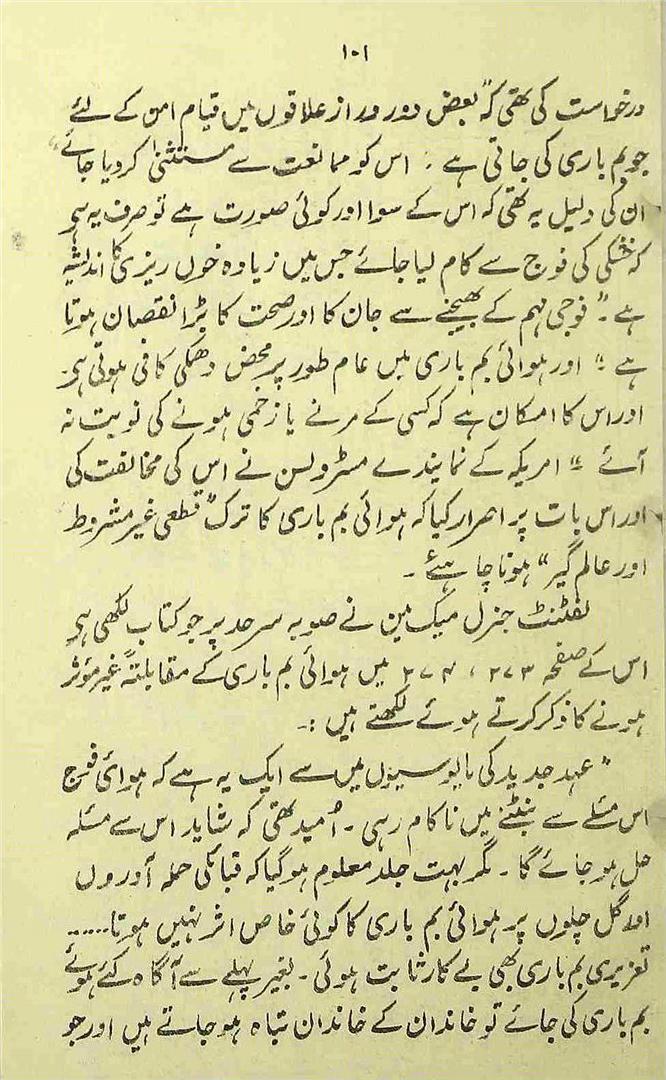 ۱۰۱
درخواست کی تھی کہ "بعض دور دراز علاقوں میں قیام امن کے لئے
جو بم باری کی جاتی ہے۔ اس کو ممانعت سے مستثنیٰ کردیا جائے"
ان کی دلیل یہ تھی کہ اس کے سوا اور کوئی صورت ہے تو صرف یہ ہی
کہ خشکی کی فوج سے کام لیا جائے جس میں زیادہ خوں ریزی کا اندیشہ
ہے۔ "فوجی مہم کے بھیجنے سے جان کا اور صحت کا بڑا نقصان ہوتا
ہے" اور ہوائی بم باری میں عام طور پر محض دھمکی کافی ہوتی ہی۔
اور اس کا امکان ہے کہ کسی کے مرنے یا زخمی ہونے کی نوبت نہ
آئے" امریکہ کے نمایندے مسٹر ولسن نے اس کی مخالفت کی
اور اس بات پر اصرار کیا کہ ہوائی بم باری کا ترک "قطعی غیر مشروط
اور عالم گیر" ہونا چاہئے۔
لفٹنٹ جنرل میک مین نے صوبہ سرحد پر جو کتاب لکھی ہی
اس کے صفحہ ۲۷۳، ۲۷۴ میں ہوائی بم باری کے مقابلتہً غیر مؤثر
ہونے کا ذکر کرتے ہوئے لکھتے ہیں :۔
"عہد جدید کی مایوسیوں میں سے ایک یہ ہے کہ ہوائی فوج
اس مسئلے سے نبٹنے میں ناکام رہی۔ اُمید تھی کہ شاید اس سے مسئلہ
حل ہوجائے گا۔ مگر بہت جلد معلوم ہوگیا کہ قبائلی حملہ آوروں
اور گل چلوں پر ہوائی بم باری کا کوئی خاص اثر نہیں ہوتا......
تعزیری بم باری بھی بے کار ثابت ہوئی۔ بغیر پہلے سے آگاہ کئے ہوئے
بم باری کی جائے تو خاندان کے خاندان تباہ ہوجاتے ہیں اور جو